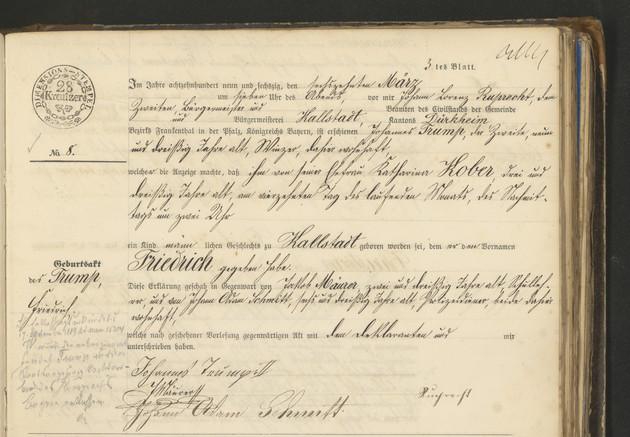 3 tes Blatt.
DIMENSIONS-STEMPEL
28
Kreutzer
Im Jahre achtzehnhundert neun und sechszig, den sechszehnten März
um sieben Uhr des Abends, vor mir Johann Lorenz Ruprecht, dem
Zweiten Bürgermeister und Beamten des Civilstandes der Gemeinde
und Bürgermeisterei Kallstadt, Kantons Dürkheim
Bezirks Frankenthal in der Pfalz, Königreichs Bayern, ist erschienen Johannes Trump, der Zweite, neun
No. 8.
und dreißig Jahre alt, Winzer, daher wohnhaft,
welcher die Anzeige machte, daß ihm von seiner Ehefrau Katharina Kober, drei und
dreißig Jahre alt, am vierzehnten Tag des laufenden Monats, des Nachmit-
tags um zwei Uhr
ein Kind männlichen Geschlechts zu Kallstadt geboren worden sei, dem er den Vornamen
Geburtsakt
Friedrich gegeben habe.
des Trump,
Friedrich
Diese Erklärung geschah in Gegenwart von Jakob Mäurer, zwei und dreißig Jahre alt, Schulleh-
rer, und von Johann Adam Schmitt, dreißig Jahre alt, Polizeidiener, beide daher
wohnhaft,
welche nach geschehener Vorlesung gegenwärtigen Akt mit dem Deklaranten und mir
unterschrieben haben.
Johannes Trump II
J Mäurer
Ruprecht
Johann Adam Schmitt.